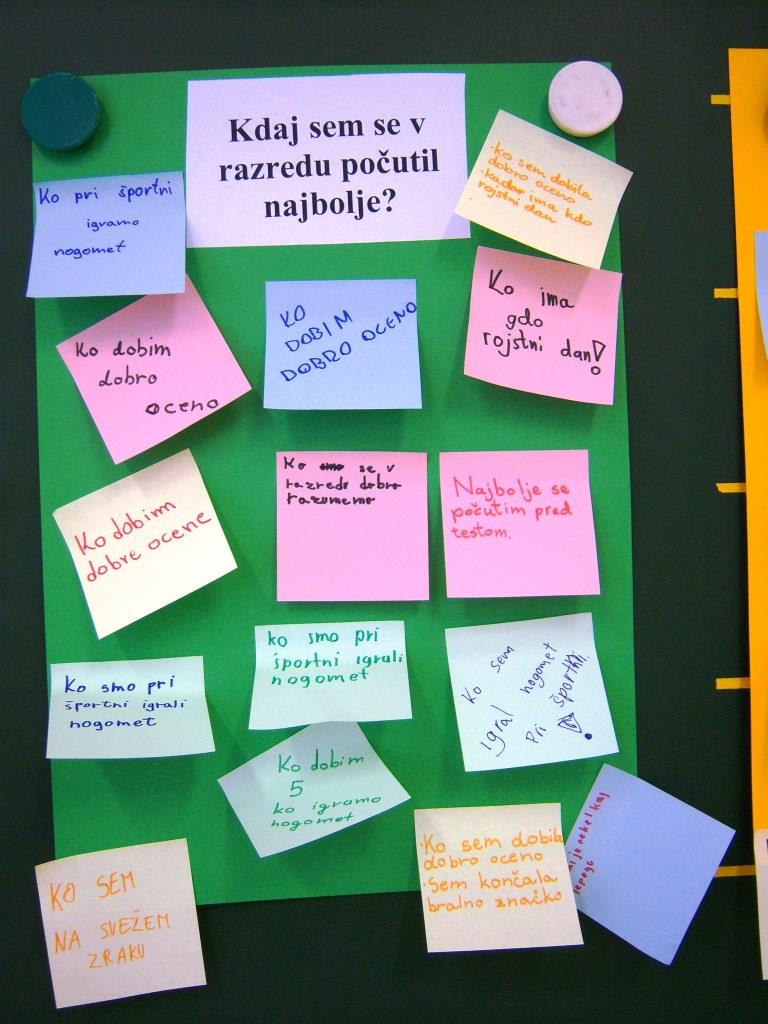 Kdaj sem se v
razredu počutil
najbolje?
Ko pri športni
igramo
nogomet
·Ko sem dobila
dobro oceno
·Kadar ima kdo
rojstni dan
Ko dobim
dobro
oceno
KO
DOBIM
DOBRO OCENO
Ko ima
gdo
rojstni dan!
Ko dobim
dobre ocene
Ko smo se v
razredu dobro
razumemo
Najbolje se
počutim pred
testom.
Ko smo pri
športni igrali
nogomet
ko smo pri
športni igrali
nogomet
Ko sem
igral nogomet
Pri športni.
!
Ko dobim
5
ko igramo
nogomet
KO SEM
NA SVEŽEM
ZRAKU
·Ko sem dobila
dobro oceno
·Sem končala
bralno značko
je nekel kaj
lepega